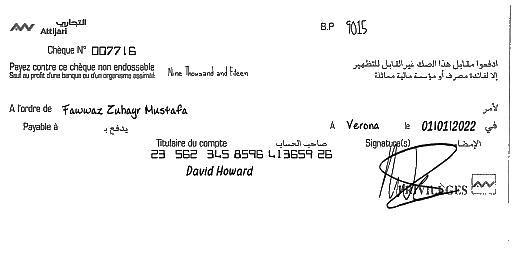 التجاري
Attijari
B.P 9015
Chèque N° 007716
Payez contre ce chèque non endossable
Sauf au profit d'une banque ou d'un organisme assimilé
Nine Thousand and Fifteen
ادفعوا مقابل هذا الصك غير القابل للتظهير
إلا لفائدة مصرف أو مؤسسة مالية مماثلة
A l'ordre de Fawwaz Zuhayr Mustafa لأمر
Payable à يدفع بـ A Verona le 01/01/2022 في
Titulaire du compte صاحب الحساب Signature(s) الإمضاء
23 562 345 8596 413659 26
David Howard
PRIVILÈGES